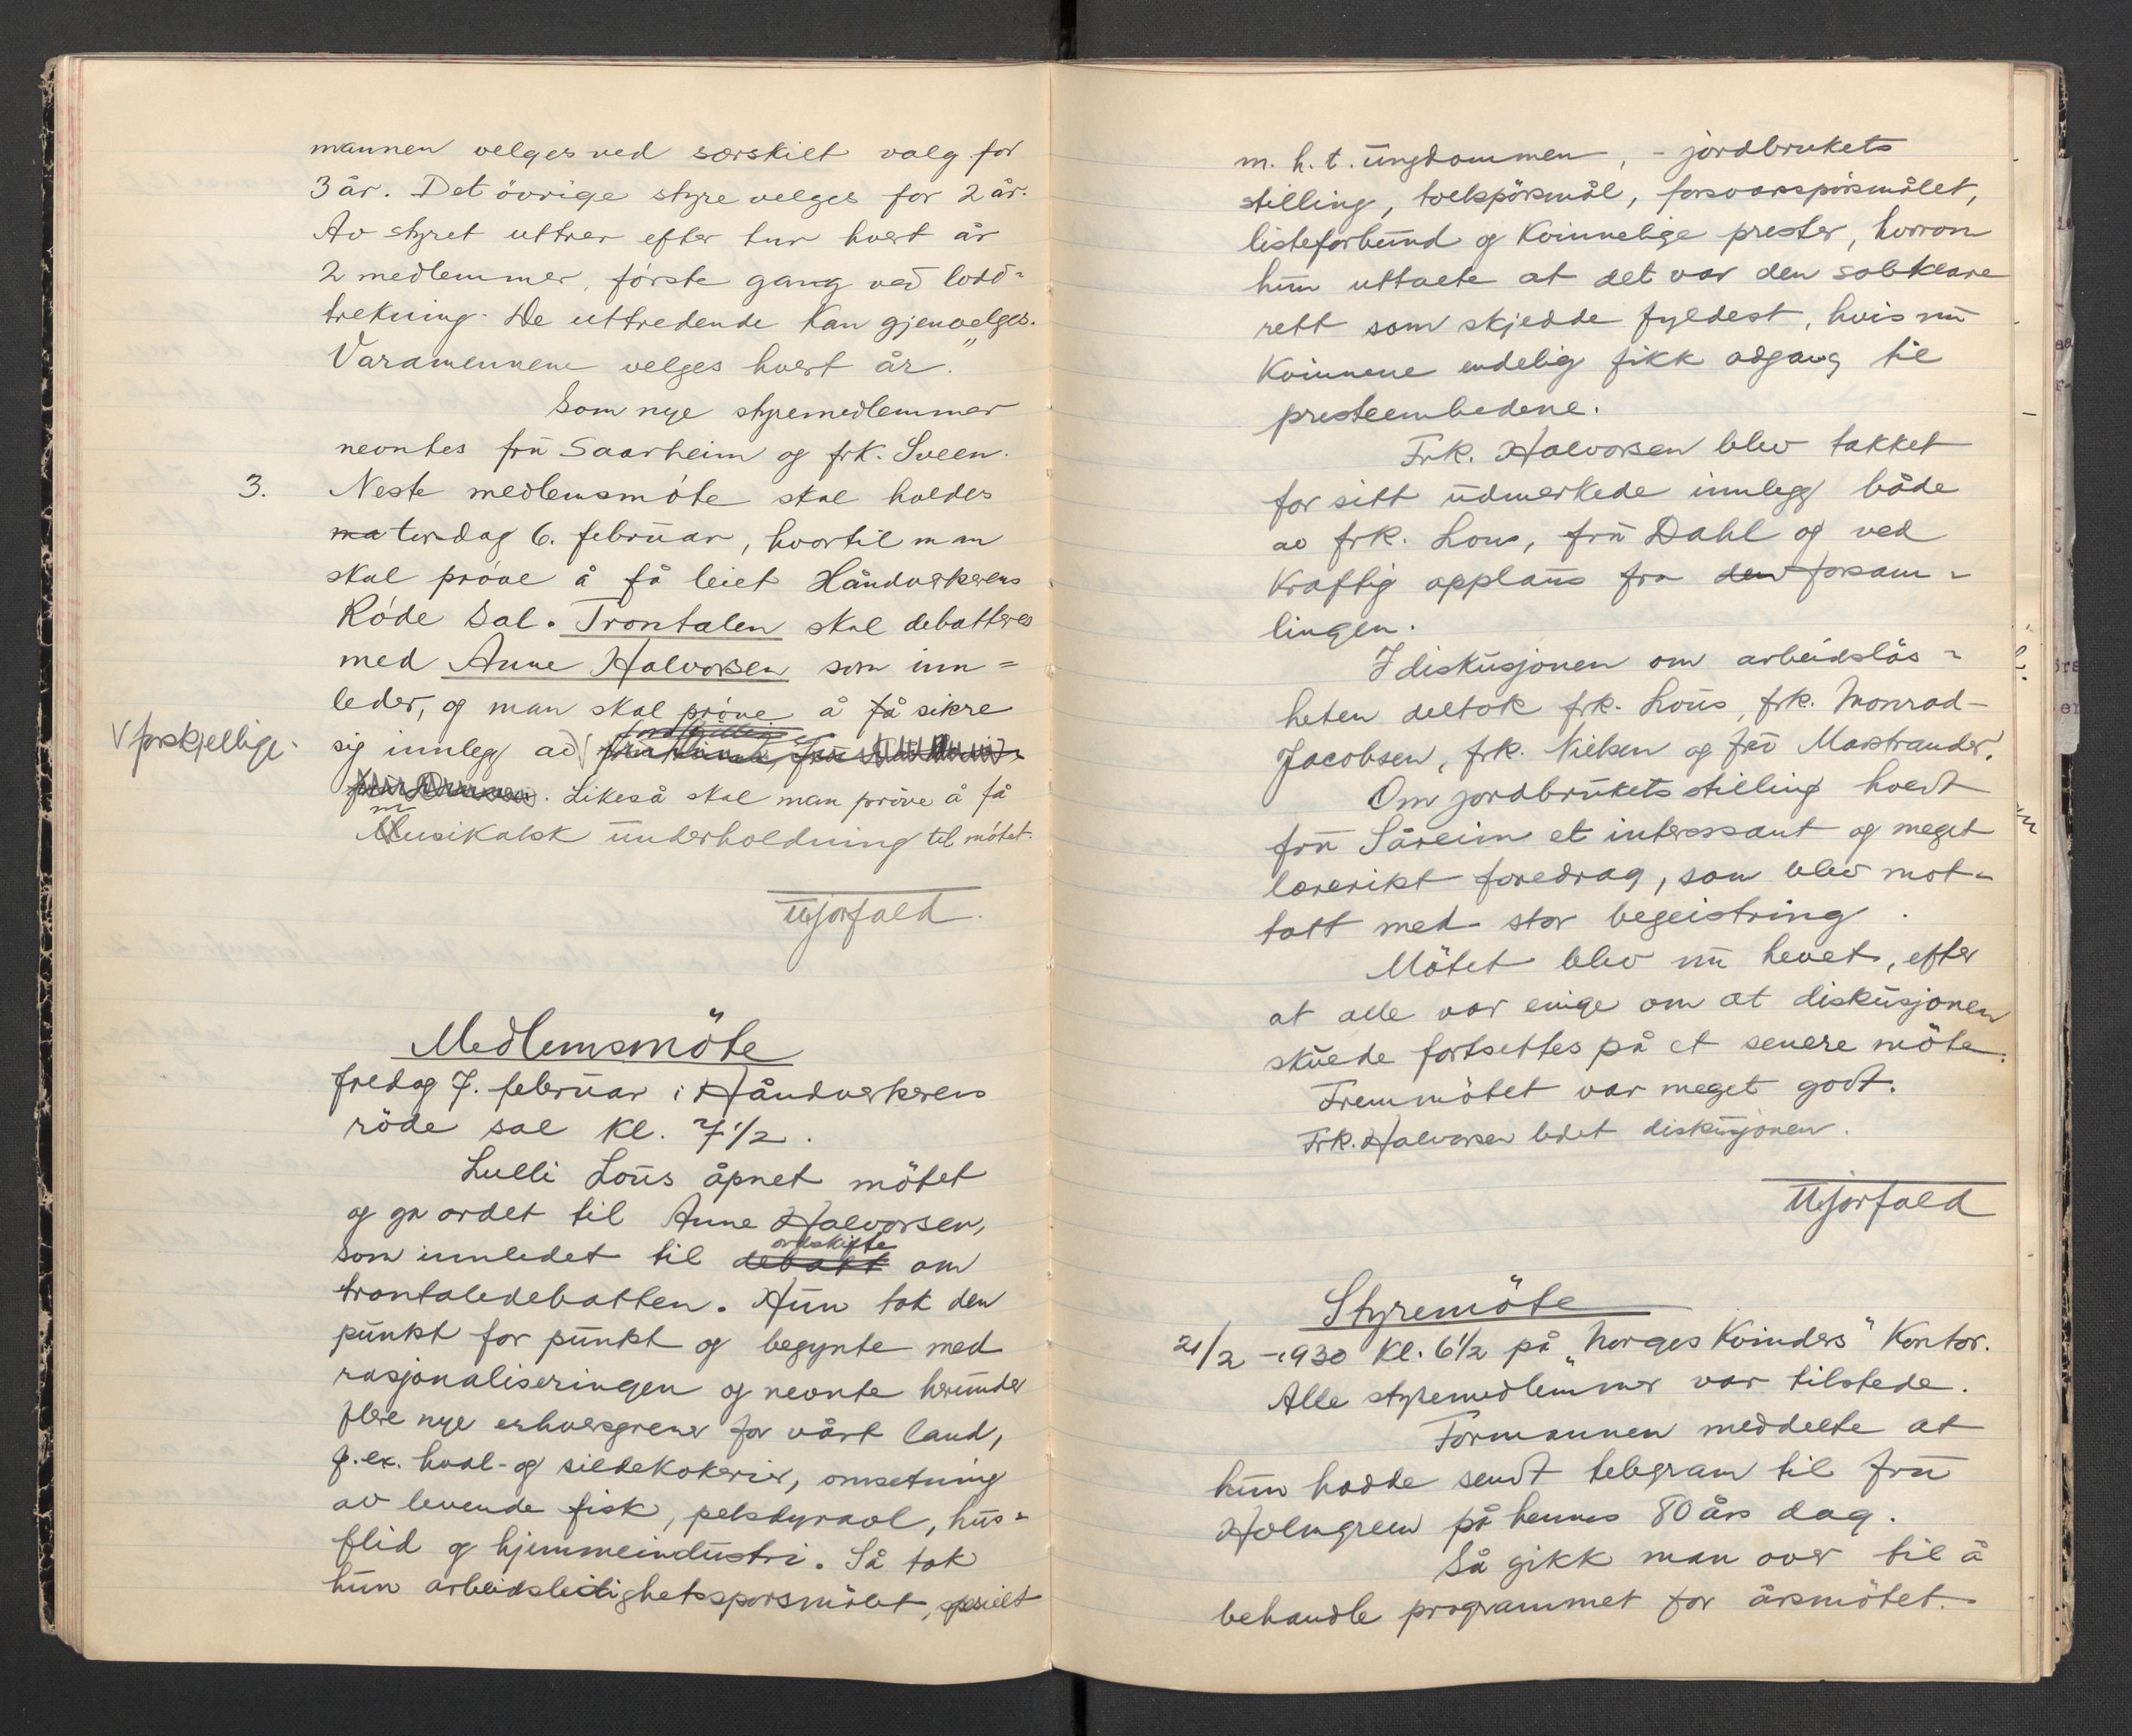 mannen velges ved særskilt valg for
3 år. Det övrige styre velges for 2 år.
Av styret uttrer efter tur hvert år
2 medlemmer, förste gang ved lodd-
trekning. De uttredende kan gjenvelges.
Varamennene velges hvert år."
Som nye styremedlemmer
nevntes frü Saarheim og frk. Sveen.
3. Neste medlemsmöte skal holdes
ma torsdag 6. februar, hvortil man
skal pröve å få leiet Håndverkerens
Röde Sal. Trontalen skal debatteres
med Anne Halvorsen som inn=
leder, og man skal pröve å få sikre
V forskjellige.
sig innlegg av V
. Likeså skal man pröve å få
musikalsk underholdning til mötet.
MJorfald.
Medlemsmöte
fredag 7. februar i Håndverkerens
röde sal kl. 7 1/2.
Lulli Lous åpnet mötet
og ga ordet til Anne Halvorsen,
ordskifte
som innledet til debatt om
trontaledebatten. Hun tok den
punkt for punkt og begynte med
rasjonaliseringen og nevnte herunder
flere nye erhversgrener for vårt land,
f. ex. hval- og sildekokerier, omsetning
av levende fisk, pelsdyravl, hus-
flid og hjemmeindustri. Så tok
hun arbeidsledighetsspörsmålet, spesielt
m. h. t. ungdommen, - jordbrukets
stilling, tollspörsmål, forsvarsspörsmålet,
listeforbund og kvinnelige prester, hvorom
hun uttalte at det var den solklare
rett som skjedde fyldest, hvis nu
kvinnene endelig fikk adgang til
presteembedene.
Frk. Halvorsen blev takket
for sitt udmerkede innlegg både
av frk. Lous, fru Dahl og ved
kraftig applaus fra den forsam-
lingen.
I diskusjonen om arbeidslös-
heten deltok frk. Lous, frk. Monrad-
Jacobsen, frk. Nielsen og fru Marstrander.
Om jordbrukets stilling holdt
fru Såreim et interessant og meget
lærerikt foredrag, som blev mot-
tatt med stor begeistring.
Mötet blev nu hevet, efter
at alle var enige om at diskusjonen
skulde fortsettes på et senere möte.
Fremmötet var meget godt.
Frk. Halvorsen ledet diskusjonen.
MJorfald
Styremöte
21/2 - 1930 kl. 6 1/2 på „Norges Kvinders" kontor.
Alle styremedlemmer var tilstede.
Formannen meddelte at
hun hadde sendt telegram til fru
Holmgreen på hennes 80 års dag.
Så gikk man over til å
behandle programmet for årsmötet.